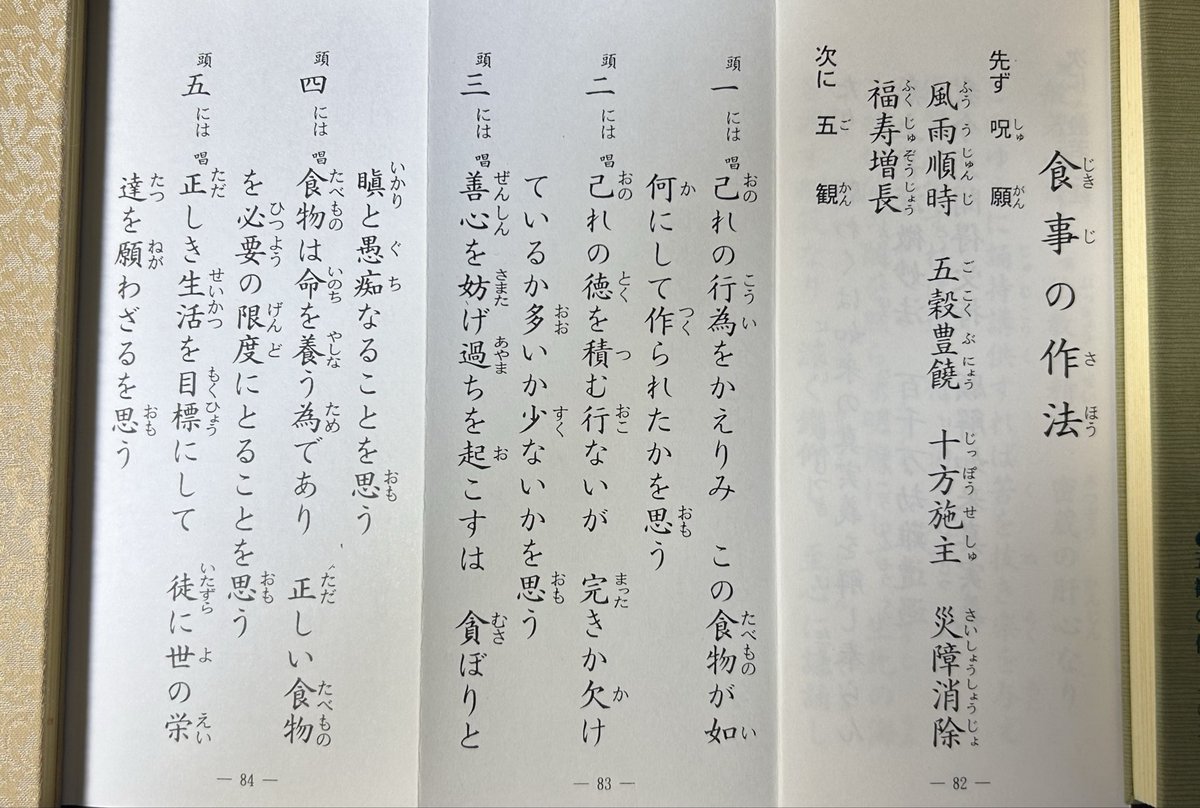 食事の作法
先ず 呪願
風雨順時 五穀豊饒 十方施主 災障消除
福寿増長
次に 五観
頭 一には 唱 己れの行為をかえりみ この食物が如
何にして作られたかを思う
頭 二には 唱 己れの徳を積む行ないが 完きか欠け
ているか多いか少ないかを思う
頭 三には 唱 善心を妨げ過ちを起こすは 貪ぼりと
— 82 —
— 83 —
瞋と愚痴なることを思う
頭 四には 唱 食物は命を養う為であり 正しい食物
を必要の限度にとることを思う
頭 五には 唱 正しき生活を目標にして 徒に世の栄
達を願わざるを思う
— 84 —